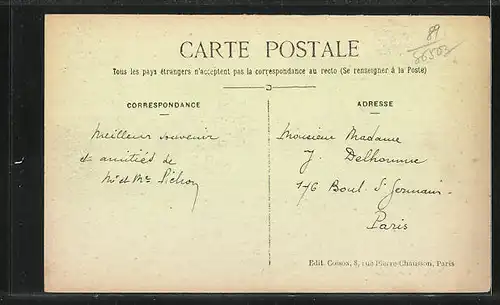 CARTE POSTALE
89
Tous les pays étrangers n'acceptent pas la correspondance au recto (Se renseigner à la Poste)
CORRESPONDANCE
Meilleur souvenir
et amitiés de
Mr et Mme Pichon
ADRESSE
Monsieur Madame
J. Delhomme
176 Boul. St Germain -
Paris
Edit. Coisox, 8, rue Pierre-Chausson, Paris